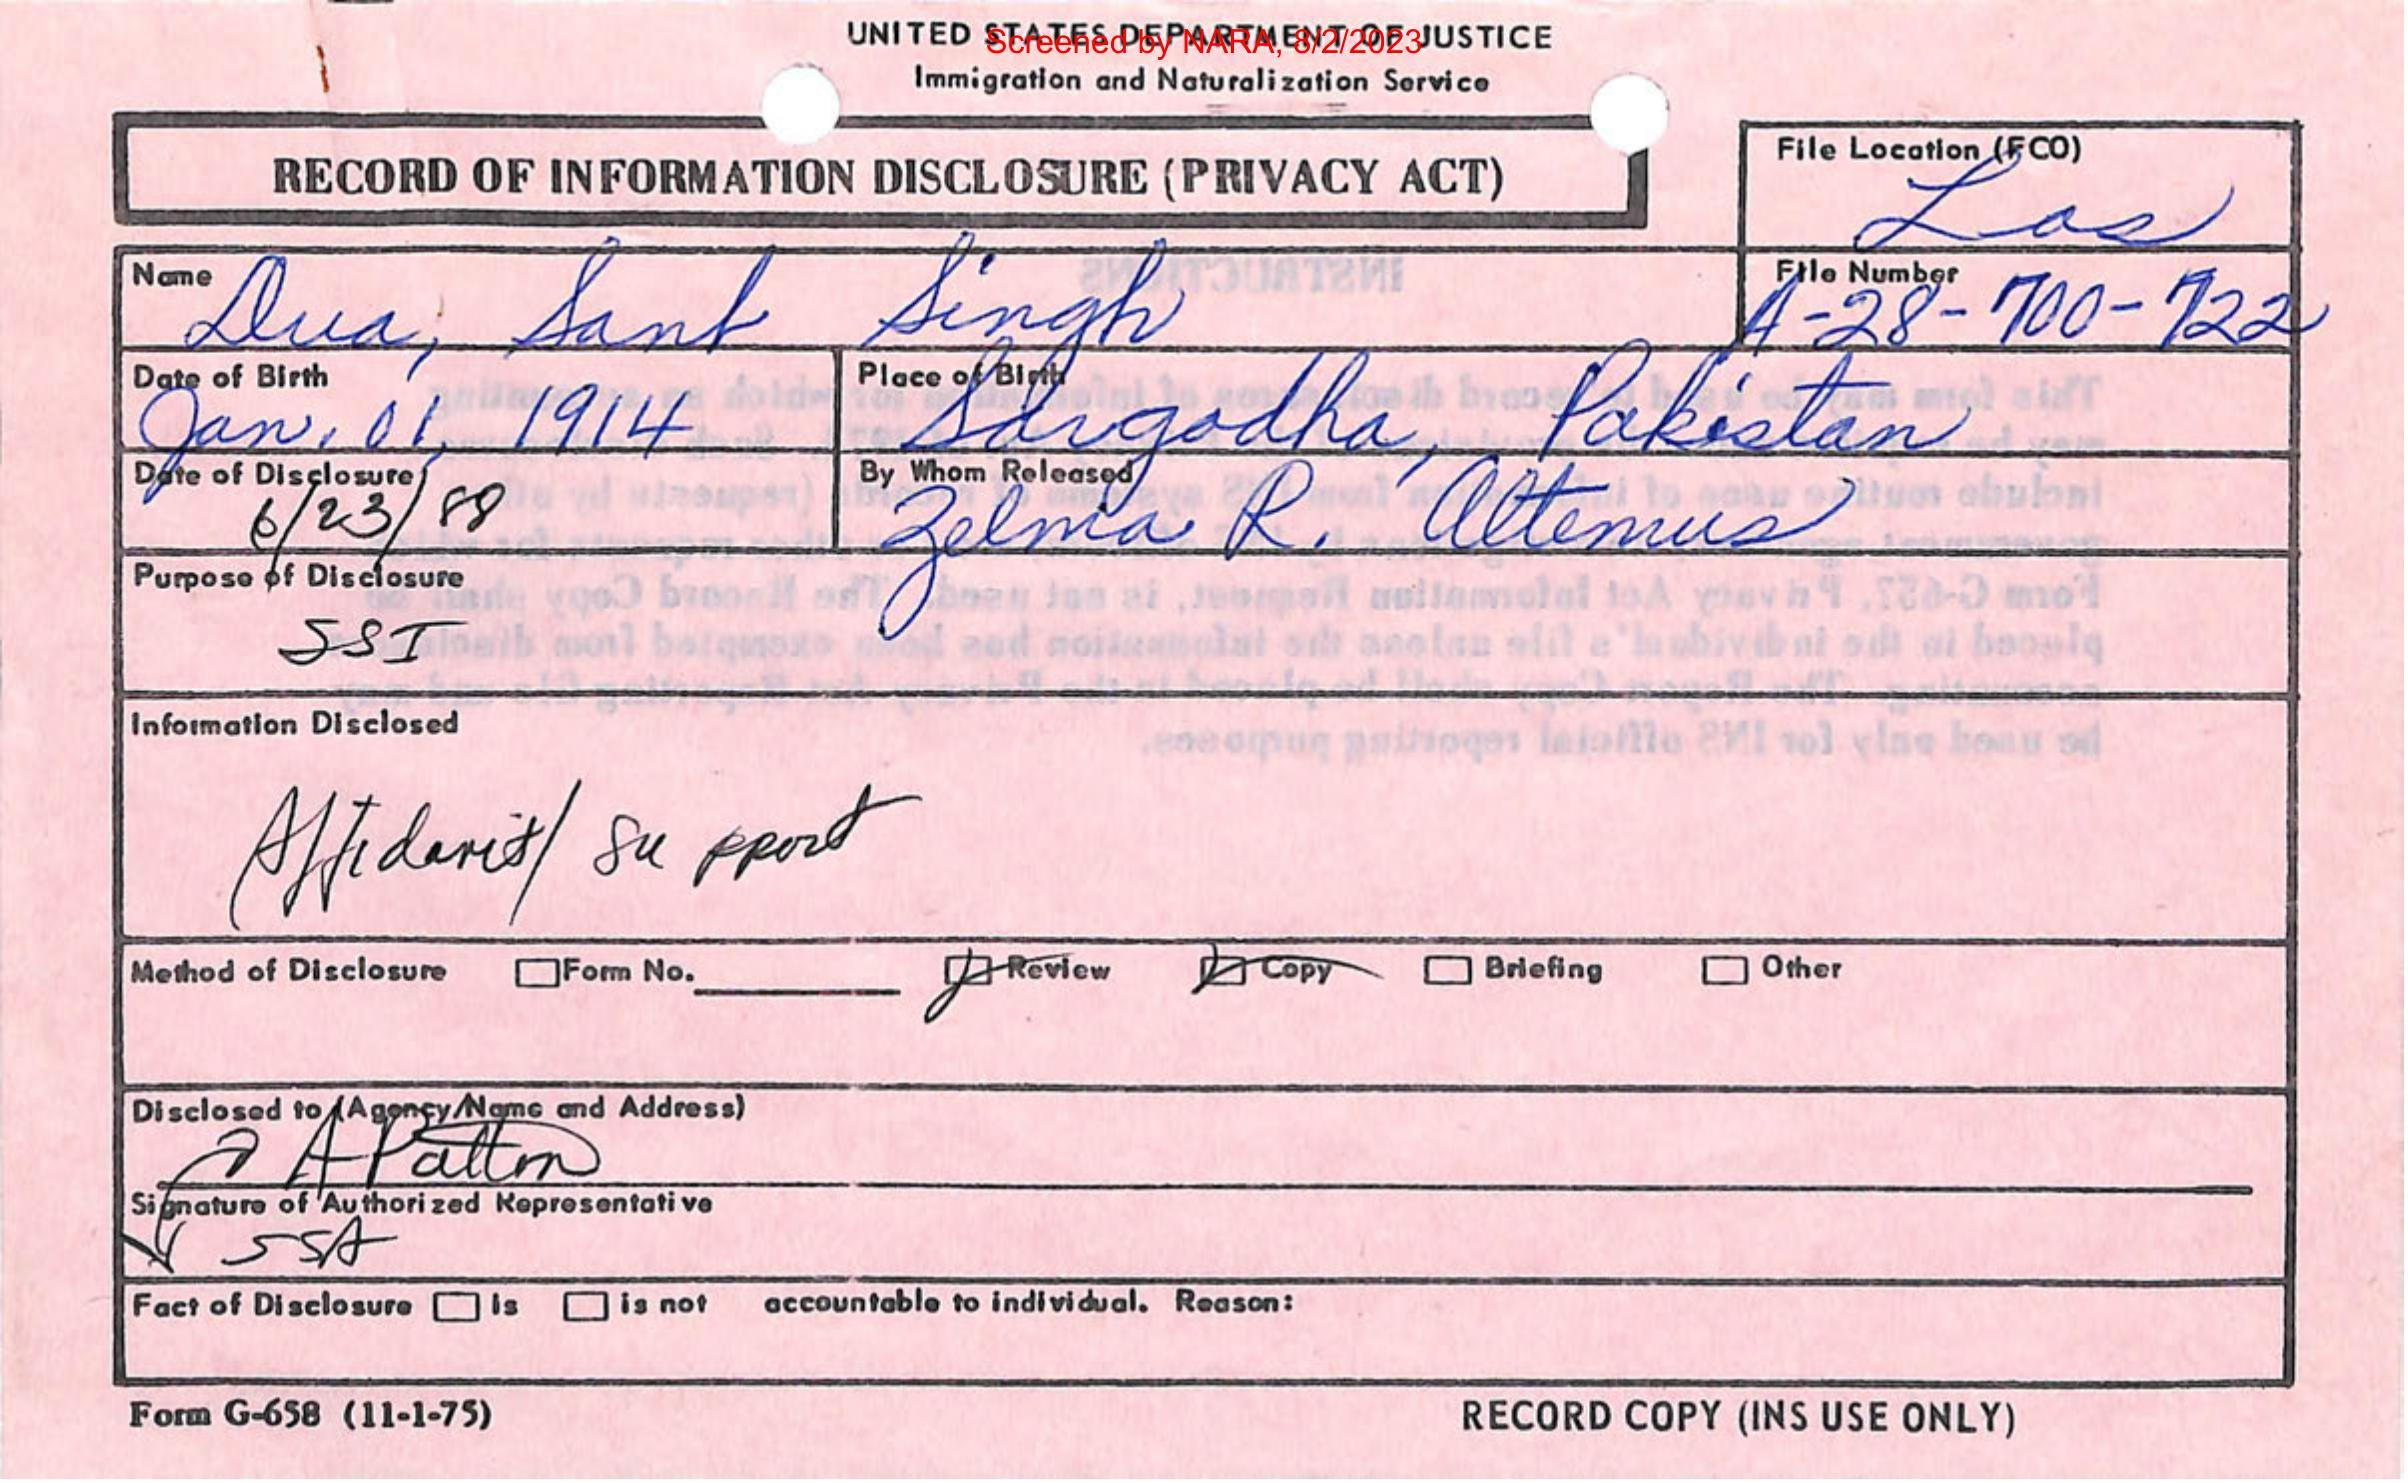 UNITED STATES DEPARTMENT OF JUSTICE
Screened by NARA, 8/2/2023
Immigration and Naturalization Service
RECORD OF INFORMATION DISCLOSURE (PRIVACY ACT)
File Location (FCO)
Los
Name
Dua, Sant Singh
File Number
A-28-700-722
Date of Birth
Jan. 01, 1914
Place of Birth
Sargodha, Pakistan
Date of Disclosure
6/23/88
By Whom Released
Zelma R. Altemus
Purpose of Disclosure
SSI
Information Disclosed
Affidavit/ Support
Method of Disclosure Form No. Review Copy Briefing Other
Disclosed to (Agency/Name and Address)
A Patton
Signature of Authorized Representative
SSA
Fact of Disclosure is is not accountable to individual. Reason:
Form G-658 (11-1-75)
RECORD COPY (INS USE ONLY)
INSTRUCTIONS
be used only for INS official reporting purposes.